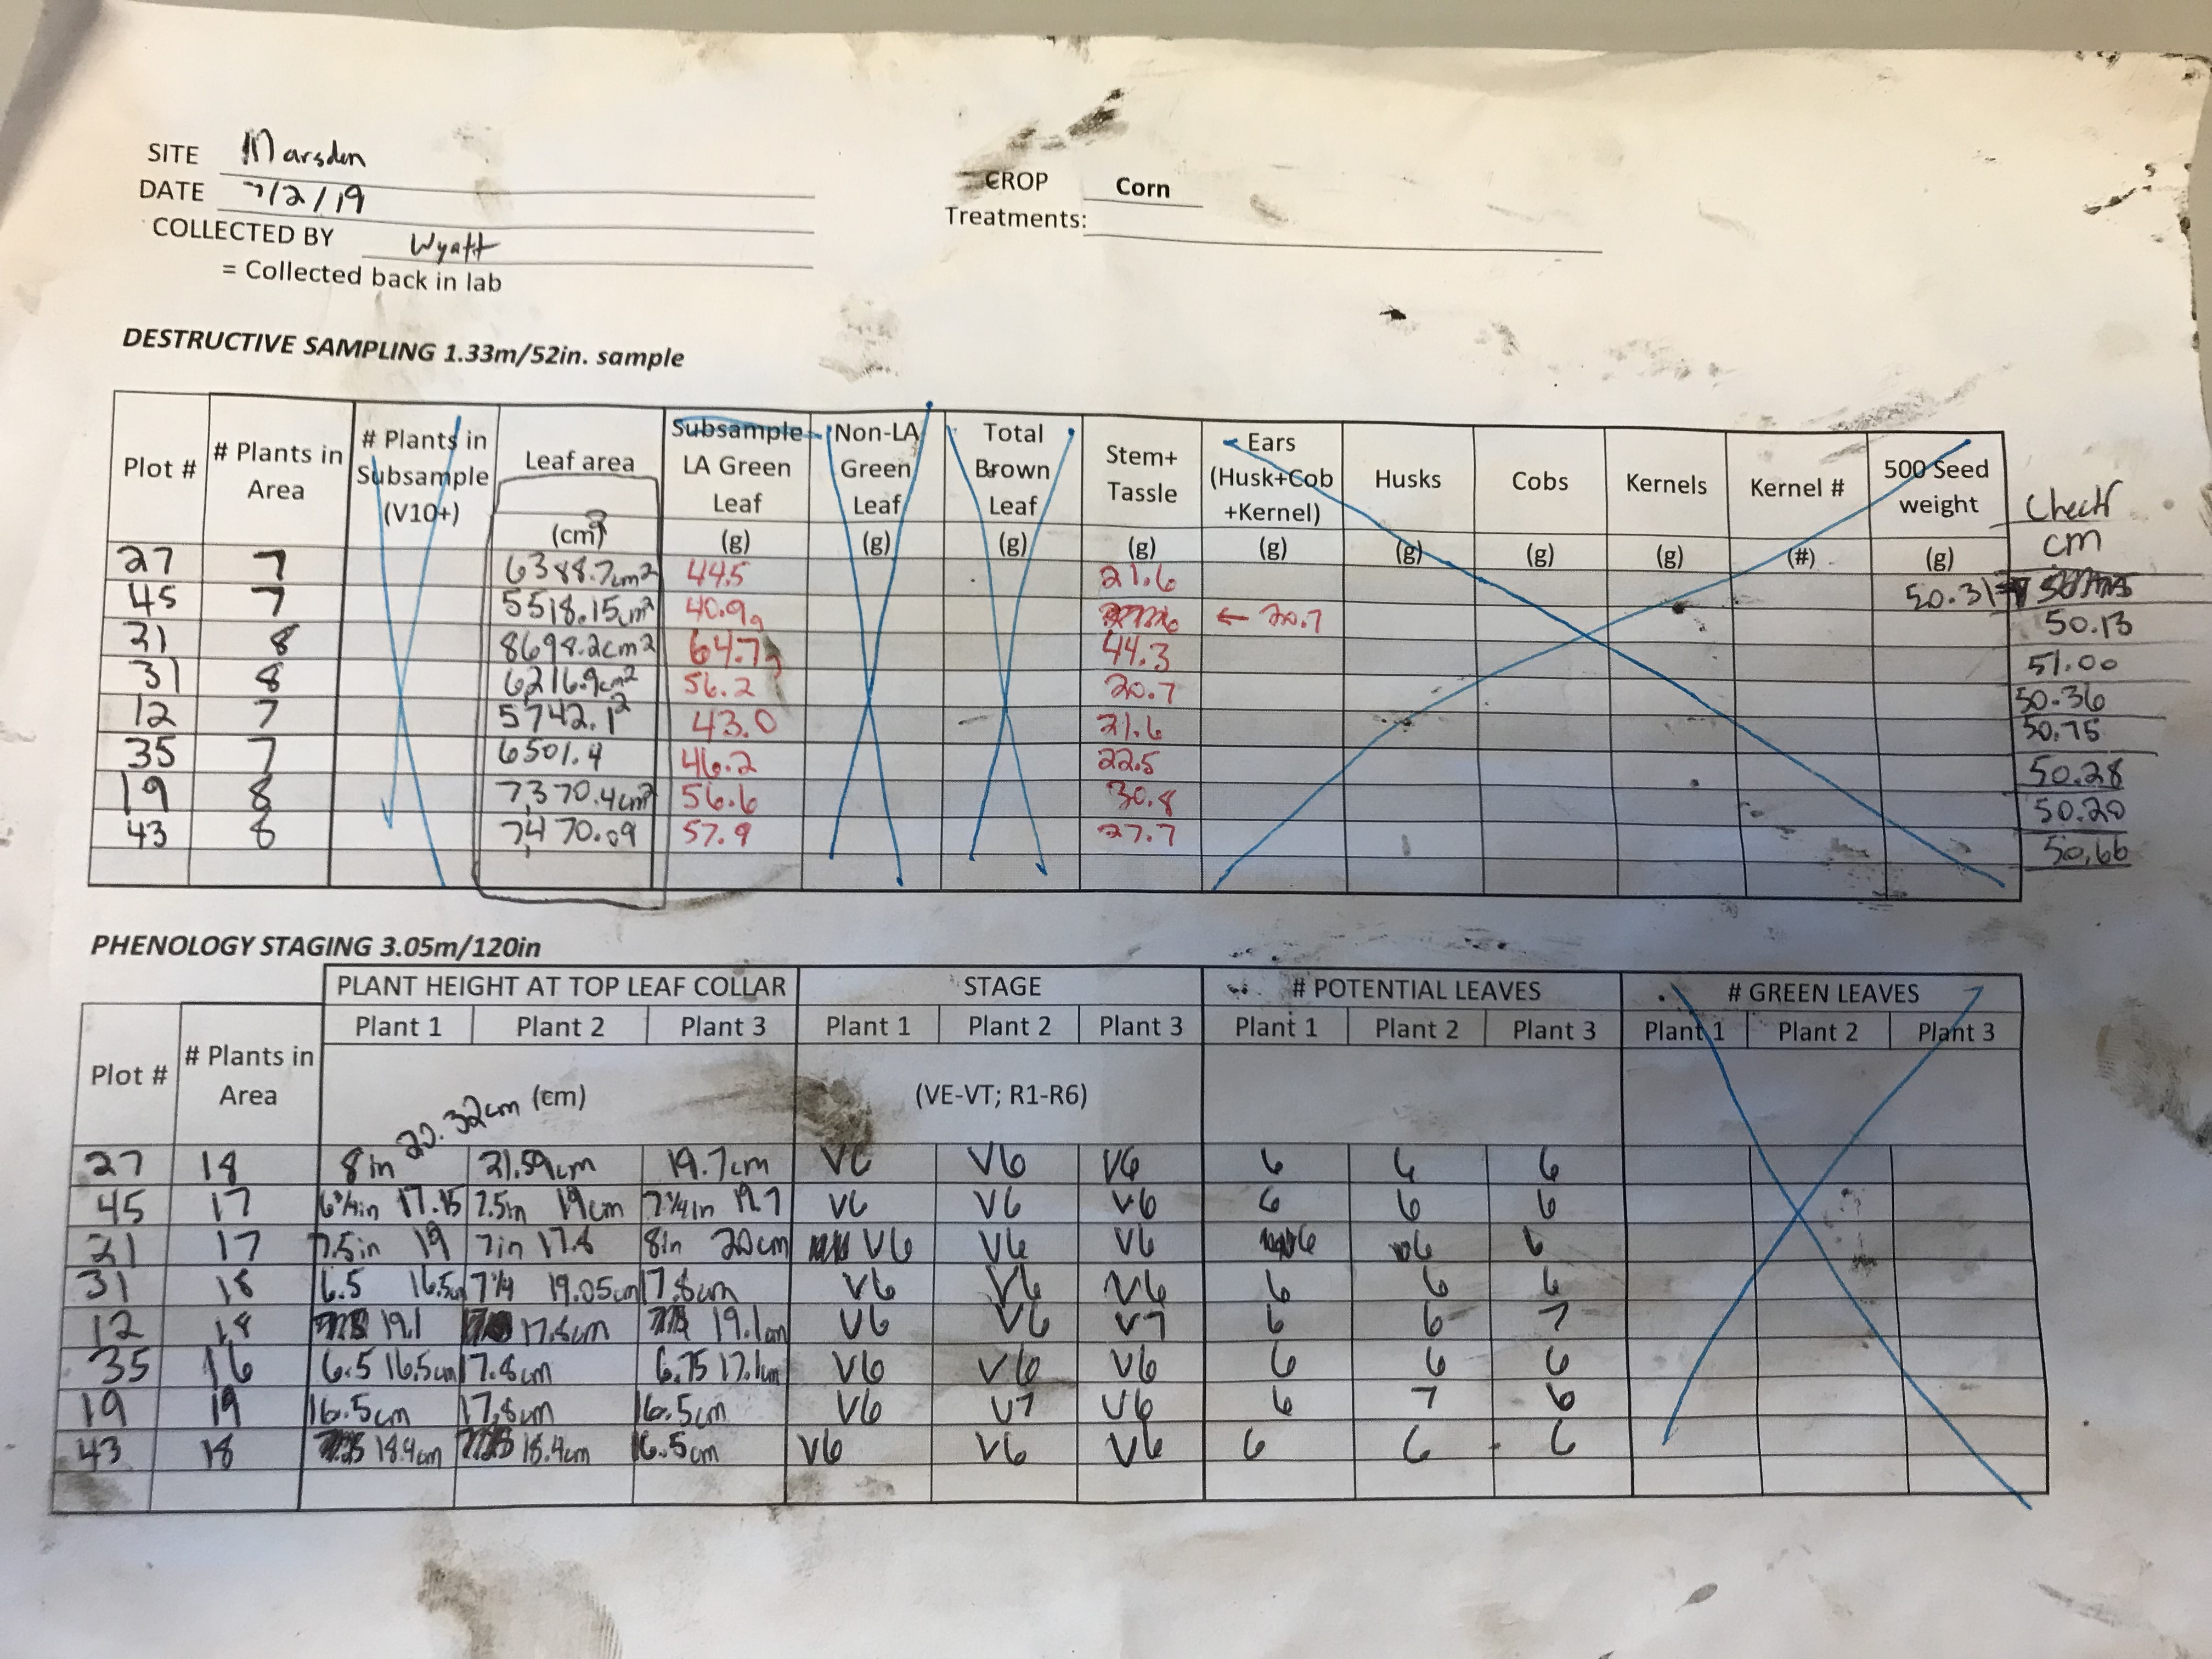 SITE Marsden
DATE 7/2/19
CROP Corn
COLLECTED BY Wyatt
Treatments:
= Collected back in lab
DESTRUCTIVE SAMPLING 1.33m/52in. sample
Plot # # Plants in Area # Plants in Subsample (V10+) Leaf area (cm²) Subsample LA Green Leaf (g) Non-LA Green Leaf (g) Total Brown Leaf (g) Stem+ Tassle (g) Ears (Husk+Cob +Kernel) (g) Husks (g) Cobs (g) Kernels (g) Kernel # (#) 500 Seed weight (g) Check cm
27 7 6388.7cm² 44.5 21.6 50.31
45 7 5518.15cm² 40.9g ← 20.7 50.13
21 8 8698.2cm² 64.7g 44.3 51.00
31 8 6,216.9cm² 56.2 20.7 50.36
12 7 5742.1² 43.0 21.6 50.75
35 7 6501.4 46.2 22.5 50.28
19 8 7,370.4cm² 56.6 30.8 50.20
43 8 7,470.09 57.9 27.7 50.66
PHENOLOGY STAGING 3.05m/120in
PLANT HEIGHT AT TOP LEAF COLLAR STAGE # POTENTIAL LEAVES # GREEN LEAVES
Plot # # Plants in Area Plant 1 Plant 2 Plant 3 Plant 1 Plant 2 Plant 3 Plant 1 Plant 2 Plant 3 Plant 1 Plant 2 Plant 3
(cm) (VE-VT; R1-R6)
27 18 8in 20.32cm 21.59cm 19.7cm V6 V6 V6 6 6 6
45 17 6¾in 17.15 7.5in 19cm 7¾in 19.7 V6 V6 V6 6 6 6
21 17 7.5in 19 7in 17.8 8in 20cm V6 V6 V6 6 6 6
31 18 6.5 16.5cm 7¼ 19.05cm 17.8cm V6 V6 V6 6 6 6
12 18 19.1 17.8cm 19.1cm V6 V6 V7 6 6 7
35 16 6.5 16.5cm 17.8cm 6.75 17.1cm V6 V6 V6 6 6 6
19 19 16.5cm 17.8cm 16.5cm V6 V7 V6 6 7 6
43 18 18.4cm 18.4cm 16.5cm V6 V6 V6 6 6 6